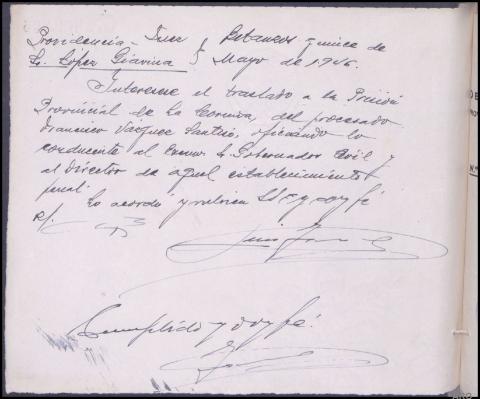 Providencia - Juez } Betanzos quince de
Sr. López Giavina } Mayo de 1946.
Interesese el traslado a la Prisión
Provincial de La Coruña, del procesado
Francisco Vázquez, oficiando lo
conducente al Excmo. Sr. Gobernador Civil y
al Director de aquel establecimiento
penal
Lo acordó y rubrica SSª y doy fé
Cumplido y doy fé.